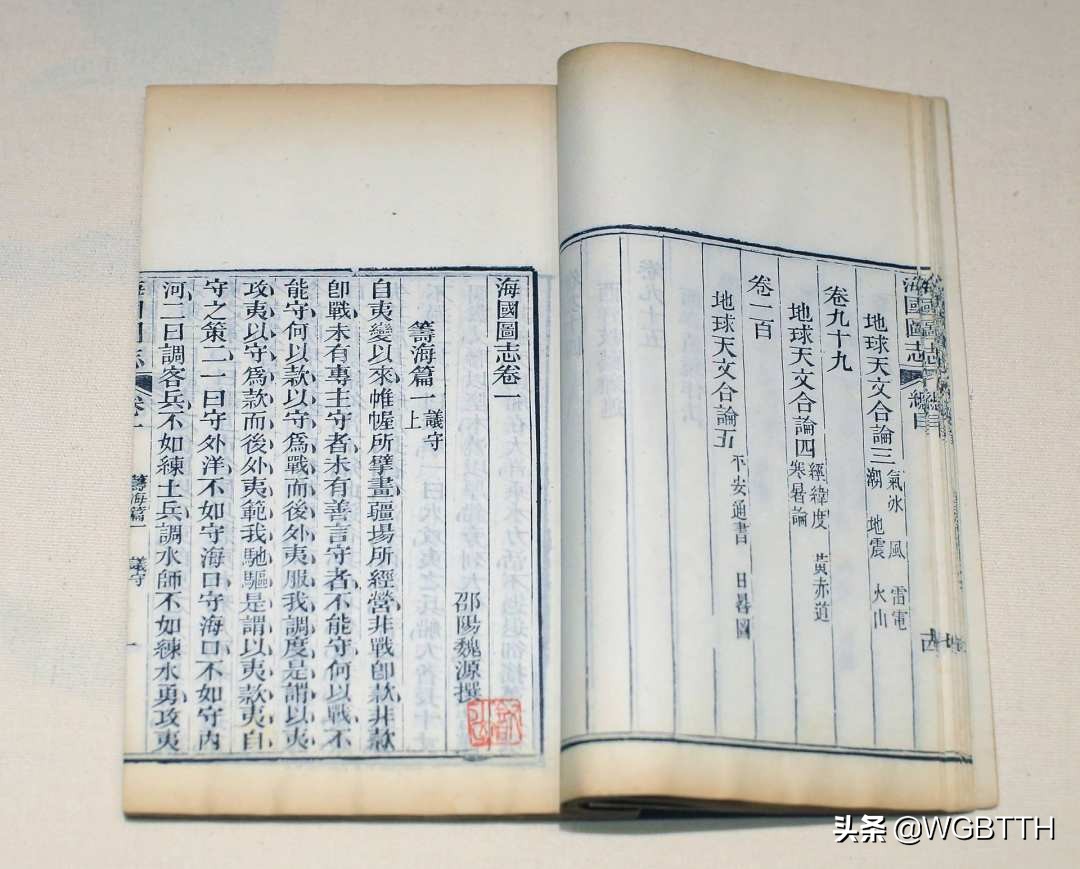 海國圖志 總目
地球天文合論三 氣冰 風 雷電
潮 地震 火山
卷九十九
地球天文合論四 經緯度 黃赤道
寒暑論
卷一百
地球天文合論五 平安通書
海國圖志卷一
邵陽魏源撰
籌海篇一 議守上
自夷變以來帷幄所擘畫疆場所經營非戰卽款非款
卽戰未有專主守者未有善言守者不能守何以戰不
能守何以款以守爲戰而後外夷服我調度是謂以夷
攻夷以守爲款而後外夷範我馳驅是謂以夷款夷自
守之策二一曰守外洋不如守海口守海口不如守內
河二曰調客兵不如練土兵調水師不如練水勇攻夷
海國圖志 卷一 籌海篇一 議守 一
头条 @WGBTTH